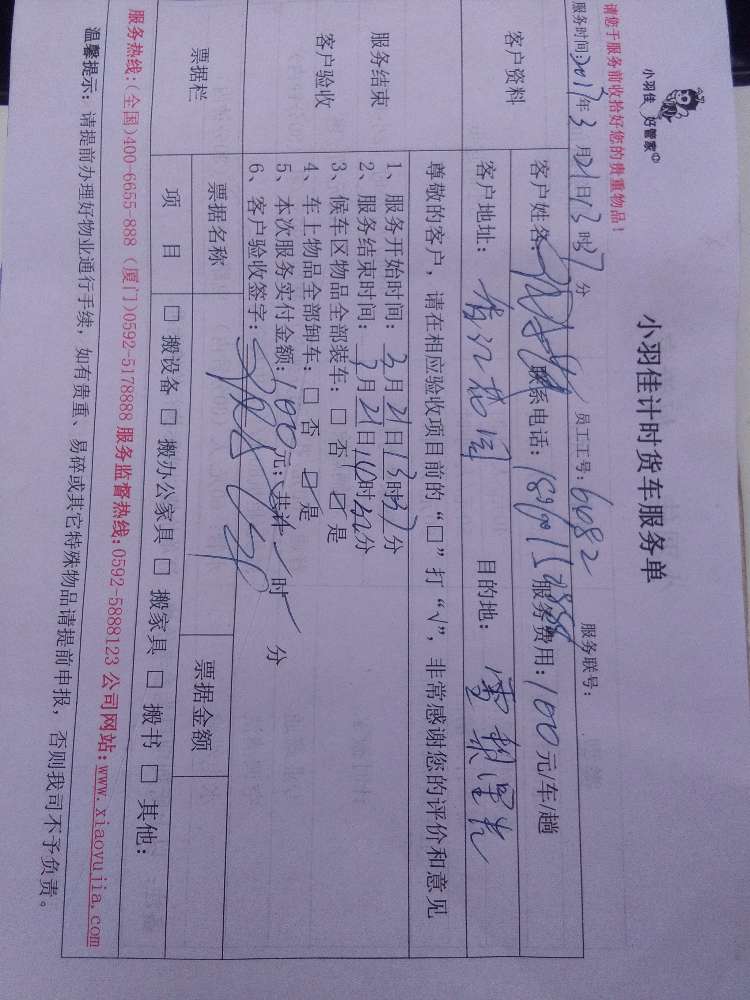 小羽佳 好管家
小羽佳计时货车服务单
请您于服务前收拾好您的贵重物品！
服务时间：2017年3月21日13时37分 员工工号：6082 服务联号：
客户资料
客户姓名： 联系电话： 服务费用：100元/车/趟
客户地址： 目的地：
尊敬的客户，请在相应验收项目前的“□”打“√”，非常感谢您的评价和意见
服务结束
客户验收
1、服务开始时间：3月21日13时37分
2、服务结束时间：3月21日 时 分
3、候车区物品全部装车：□ 否 ☑ 是
4、车上物品全部卸车：□ 否 ☑ 是
5、本次服务实付金额：100元；共计 时 分
6、客户验收签字：
票据栏
票据名称 票据金额
项 目 □ 搬设备 □ 搬办公家具 □ 搬家具 □ 搬书 □ 其他：
服务热线：（全国）400-6655-888（厦门）0592-5178888 服务监督热线：0592-5888123 公司网站：www.xiaoyujia.com
温馨提示：请提前办理好物业通行手续，如有贵重、易碎或其它特殊物品请提前申报，否则我司不予负责。